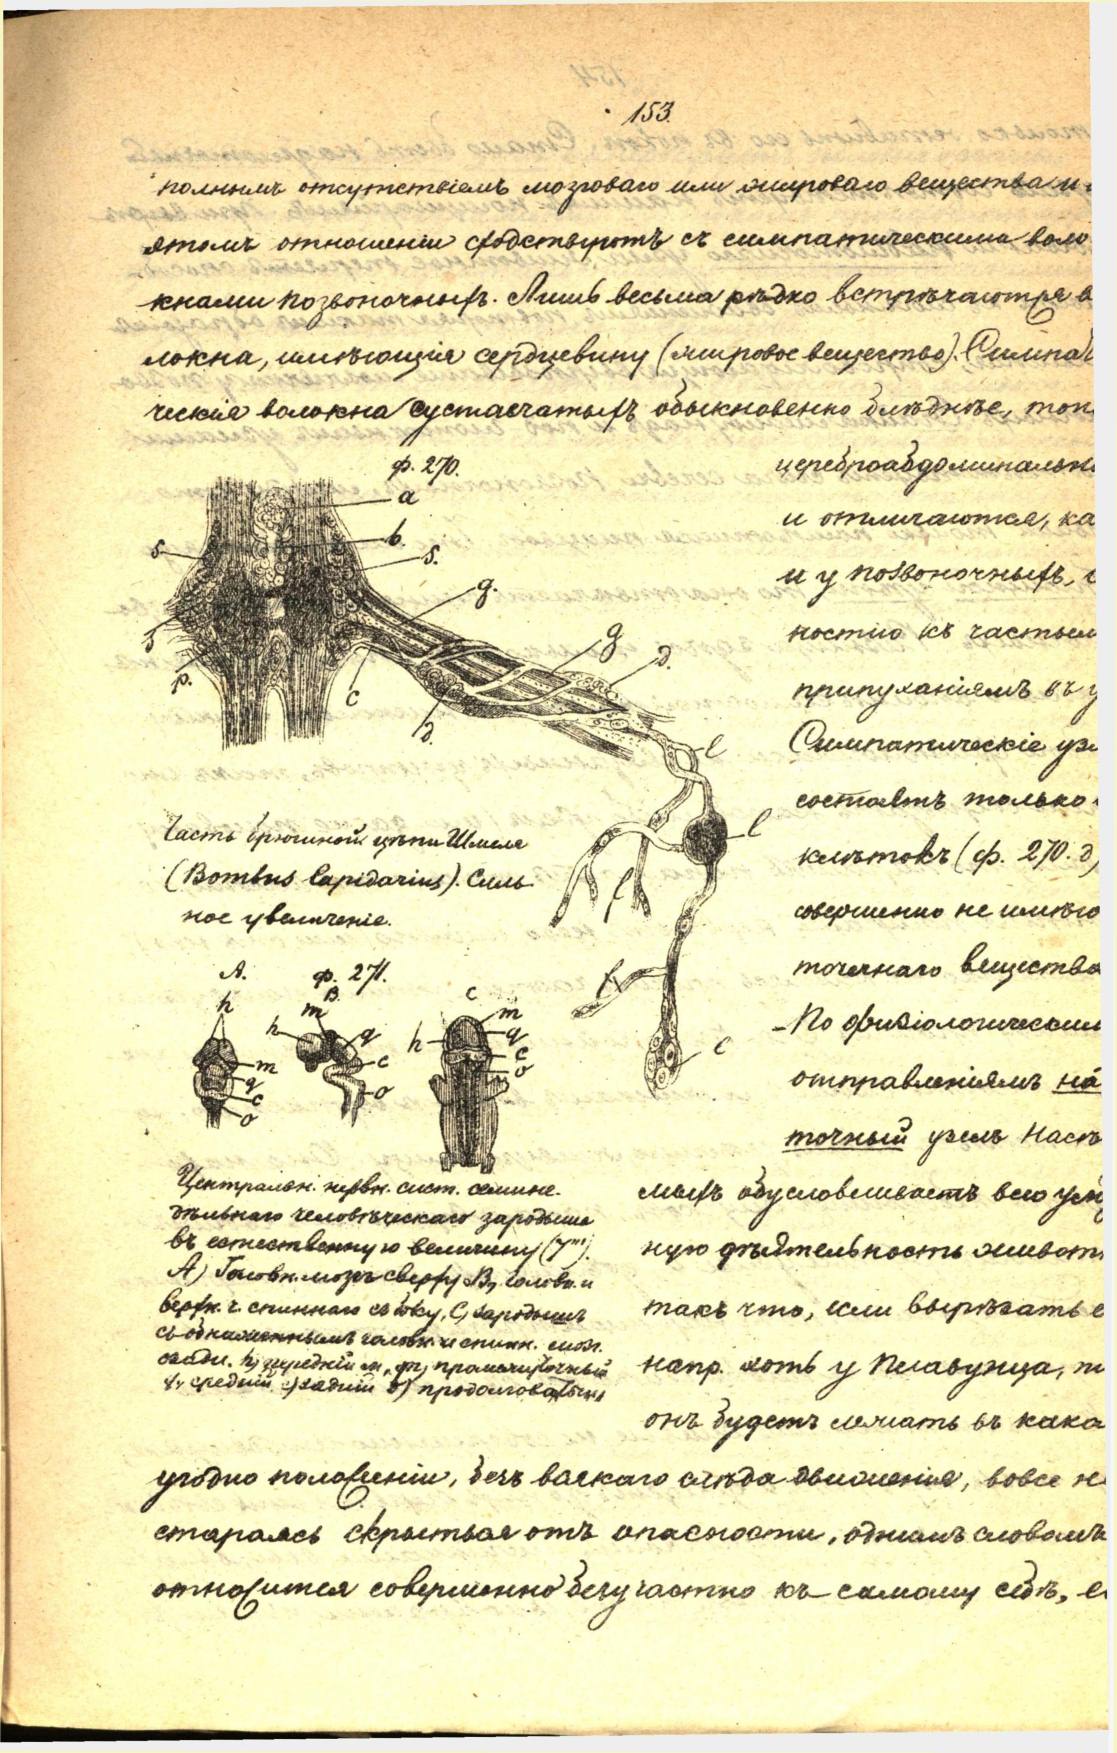 153.
полнымъ отсутствіемъ мозговаго или жироваго вещества и
этомъ отношеніи сходствуютъ съ симпатическими воло
кнами позвоночныхъ. Лишь весьма рѣдко встрѣчаются в
локна, имѣющія сердцевину (жировое вещество). Симпат
ческія волокна суставчатыхъ обыкновенно блѣднѣе, тон
ф. 270.
a
b.
s.
s.
g.
g
d.
p.
c
d.
l
l
l
c
цереброабдоминальн
и отличаются, ка
и у позвоночныхъ,
ностію къ частым
припуханіямъ въ у
Симпатическіе узл
состоятъ только
клѣтокъ (ф. 270. д)
совершенно не имѣю
точечнаго вещества
- По физіологическим
отправленіямъ на
точный узелъ насѣ
Часть брюшной цѣпи Шмеля
(Bombus lapidarius). Силь
ное увеличеніе.
A. ф. 271.
B. C
h
m
q
c
o
h
m
q
c
o
h
m
q
c
o
Центральн. нервн. сист. семине.
дѣльнаго человѣческаго зародыша
въ естественную величину (7''').
A) Головн. мозгъ сверху B) головн. и
верхн. ч. спиннаго съ боку, C) зародышъ
съ обнаженнымъ головн. и спинн. мозг.
сзади. h) передній м, m) промежуточный
q) средній c) задній o) продолговатый
мыхъ обусловливаетъ всю
ную дѣятельность живот
такъ что, если вырѣзать е
напр. хоть у Плавунца, т
онъ будетъ лежать въ како
угодно положеніи, безъ всякаго слѣда движенія, вовсе н
стараясь скрыться отъ опасности, однимъ словомъ
относится совершенно безучастно къ самому себѣ,